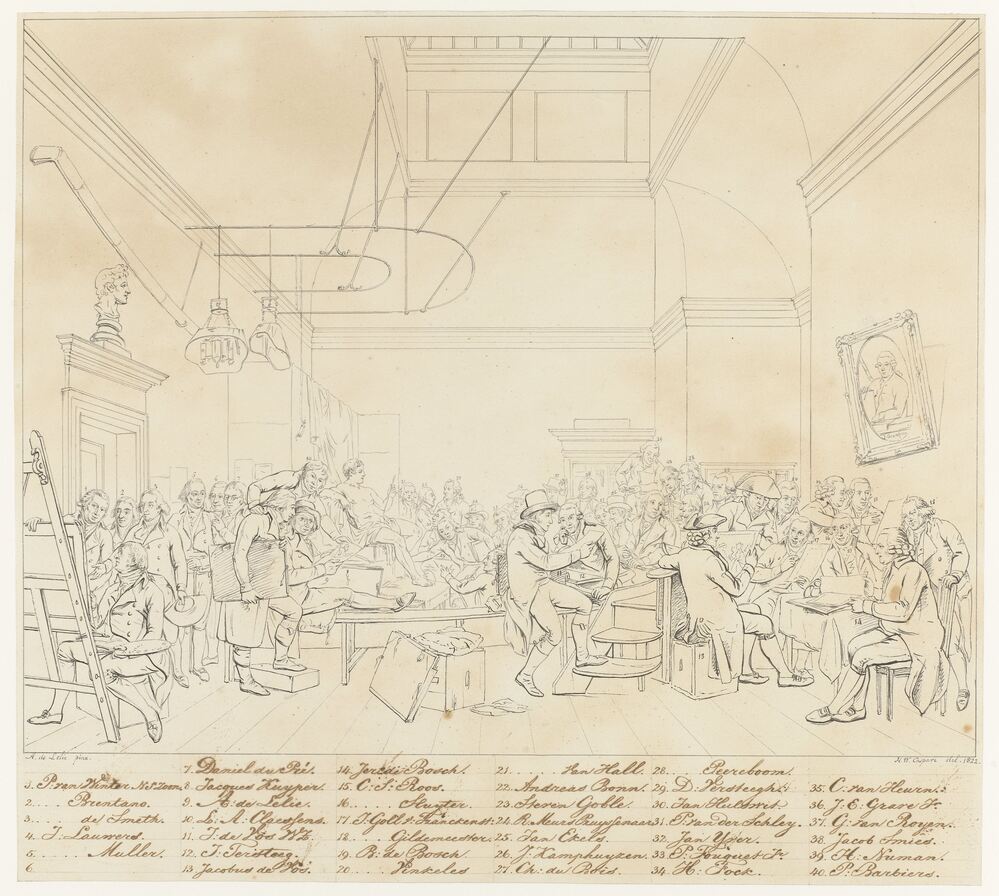 A. de Lelie pinx.
H.W. Caspari del. 1822.
1. P. van Winter N.S. Zoon
2. .... Brentano.
3. .... de Smeth.
4. J. Lauwers.
5. .... Muller.
6.
7. Daniel du Pré.
8. Jacques Kuyper.
9. A. de Lelie.
10. L. A. Claessens.
11. J. de Vos Wz.
12. J. Tersteeg.
13 Jacobus de Vos.
14. Jeronimo Bosch.
15. C. S. Roos.
16. ....
17. J. Goll v. Franckenst:
18. .. Gildemeester.
19. B. de Bosch.
20 .... Vinkeles
21. .... van Hall.
22. Andreas Bonn.
23. Steven Goble.
24. R. Muurs Ruyssenaer
25. Jan Ekels.
26. J. Kamphuyzen
27. Ch: du Bois.
28. .... Peereboom.
29. D. Versteegh:
30. Jan Hulswit.
31. P. van der Schley.
32. Jan Yver.
33. P. Fouquet Jr
34. H. Fock.
35. C. van Heurn.
36. J. E. Grave Jr.
37. G. van Royen.
38. Jacob Smies.
39. H. Numan.
40. P. Barbiers.